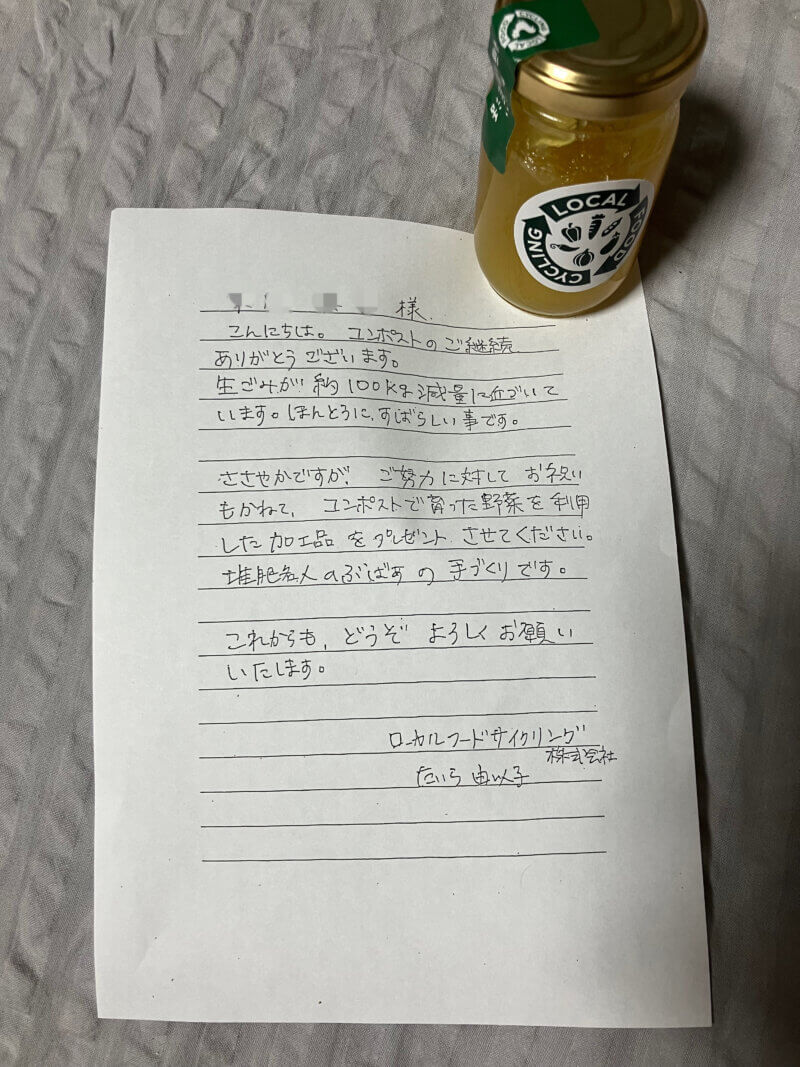 様
こんにちは。 コンポストのご継続
ありがとうございます。
生ごみが 約100kg減量に近づいて
います。ほんとうに、すばらしい事です。
ささやかですが、 ご努力に対して お祝い
もかねて、 コンポストで育った野菜を利用
した加工品 をプレゼント させてください。
堆肥名人 のぶばあ の 手づくりです。
これからも、どうぞ よろしくお願い
いたします。
ローカルフードサイクリング
株式会社
たいら 由以子
LOCAL
FOOD
CYCLING